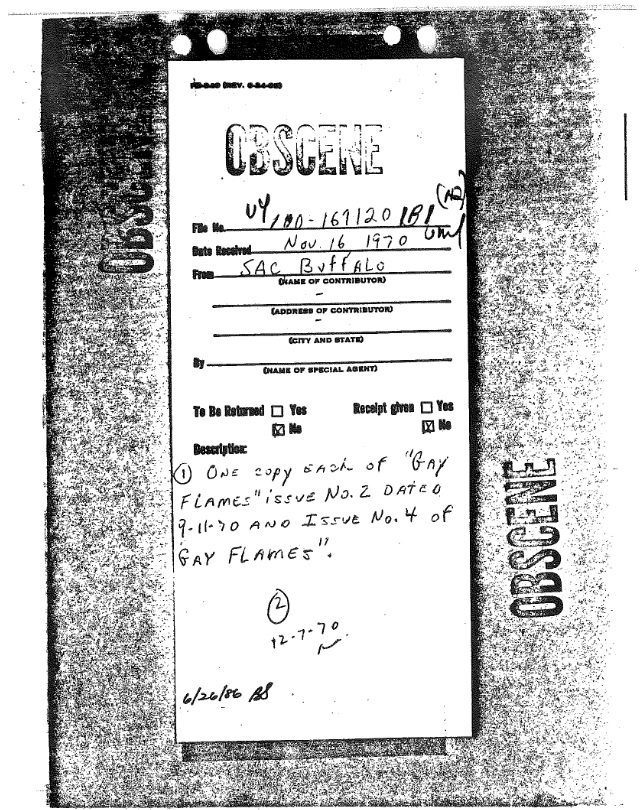 OBSCENE
OBSCENE
File No. NY 100-167120 1B1 (ND)
Date Received Nov. 16 1970
From SAC Buffalo
(NAME OF CONTRIBUTOR)
(ADDRESS OF CONTRIBUTOR)
(CITY AND STATE)
By
(NAME OF SPECIAL AGENT)
To Be Returned ☐ Yes Receipt given ☐ Yes
☒ No ☒ No
Description:
① ONE copy EACH of "GAY
FLAMES" issue No. 2 DATED
9-11-70 AND ISSUE No. 4 of
GAY FLAMES".
②
12-7-70
6/26/86
OBSCENE